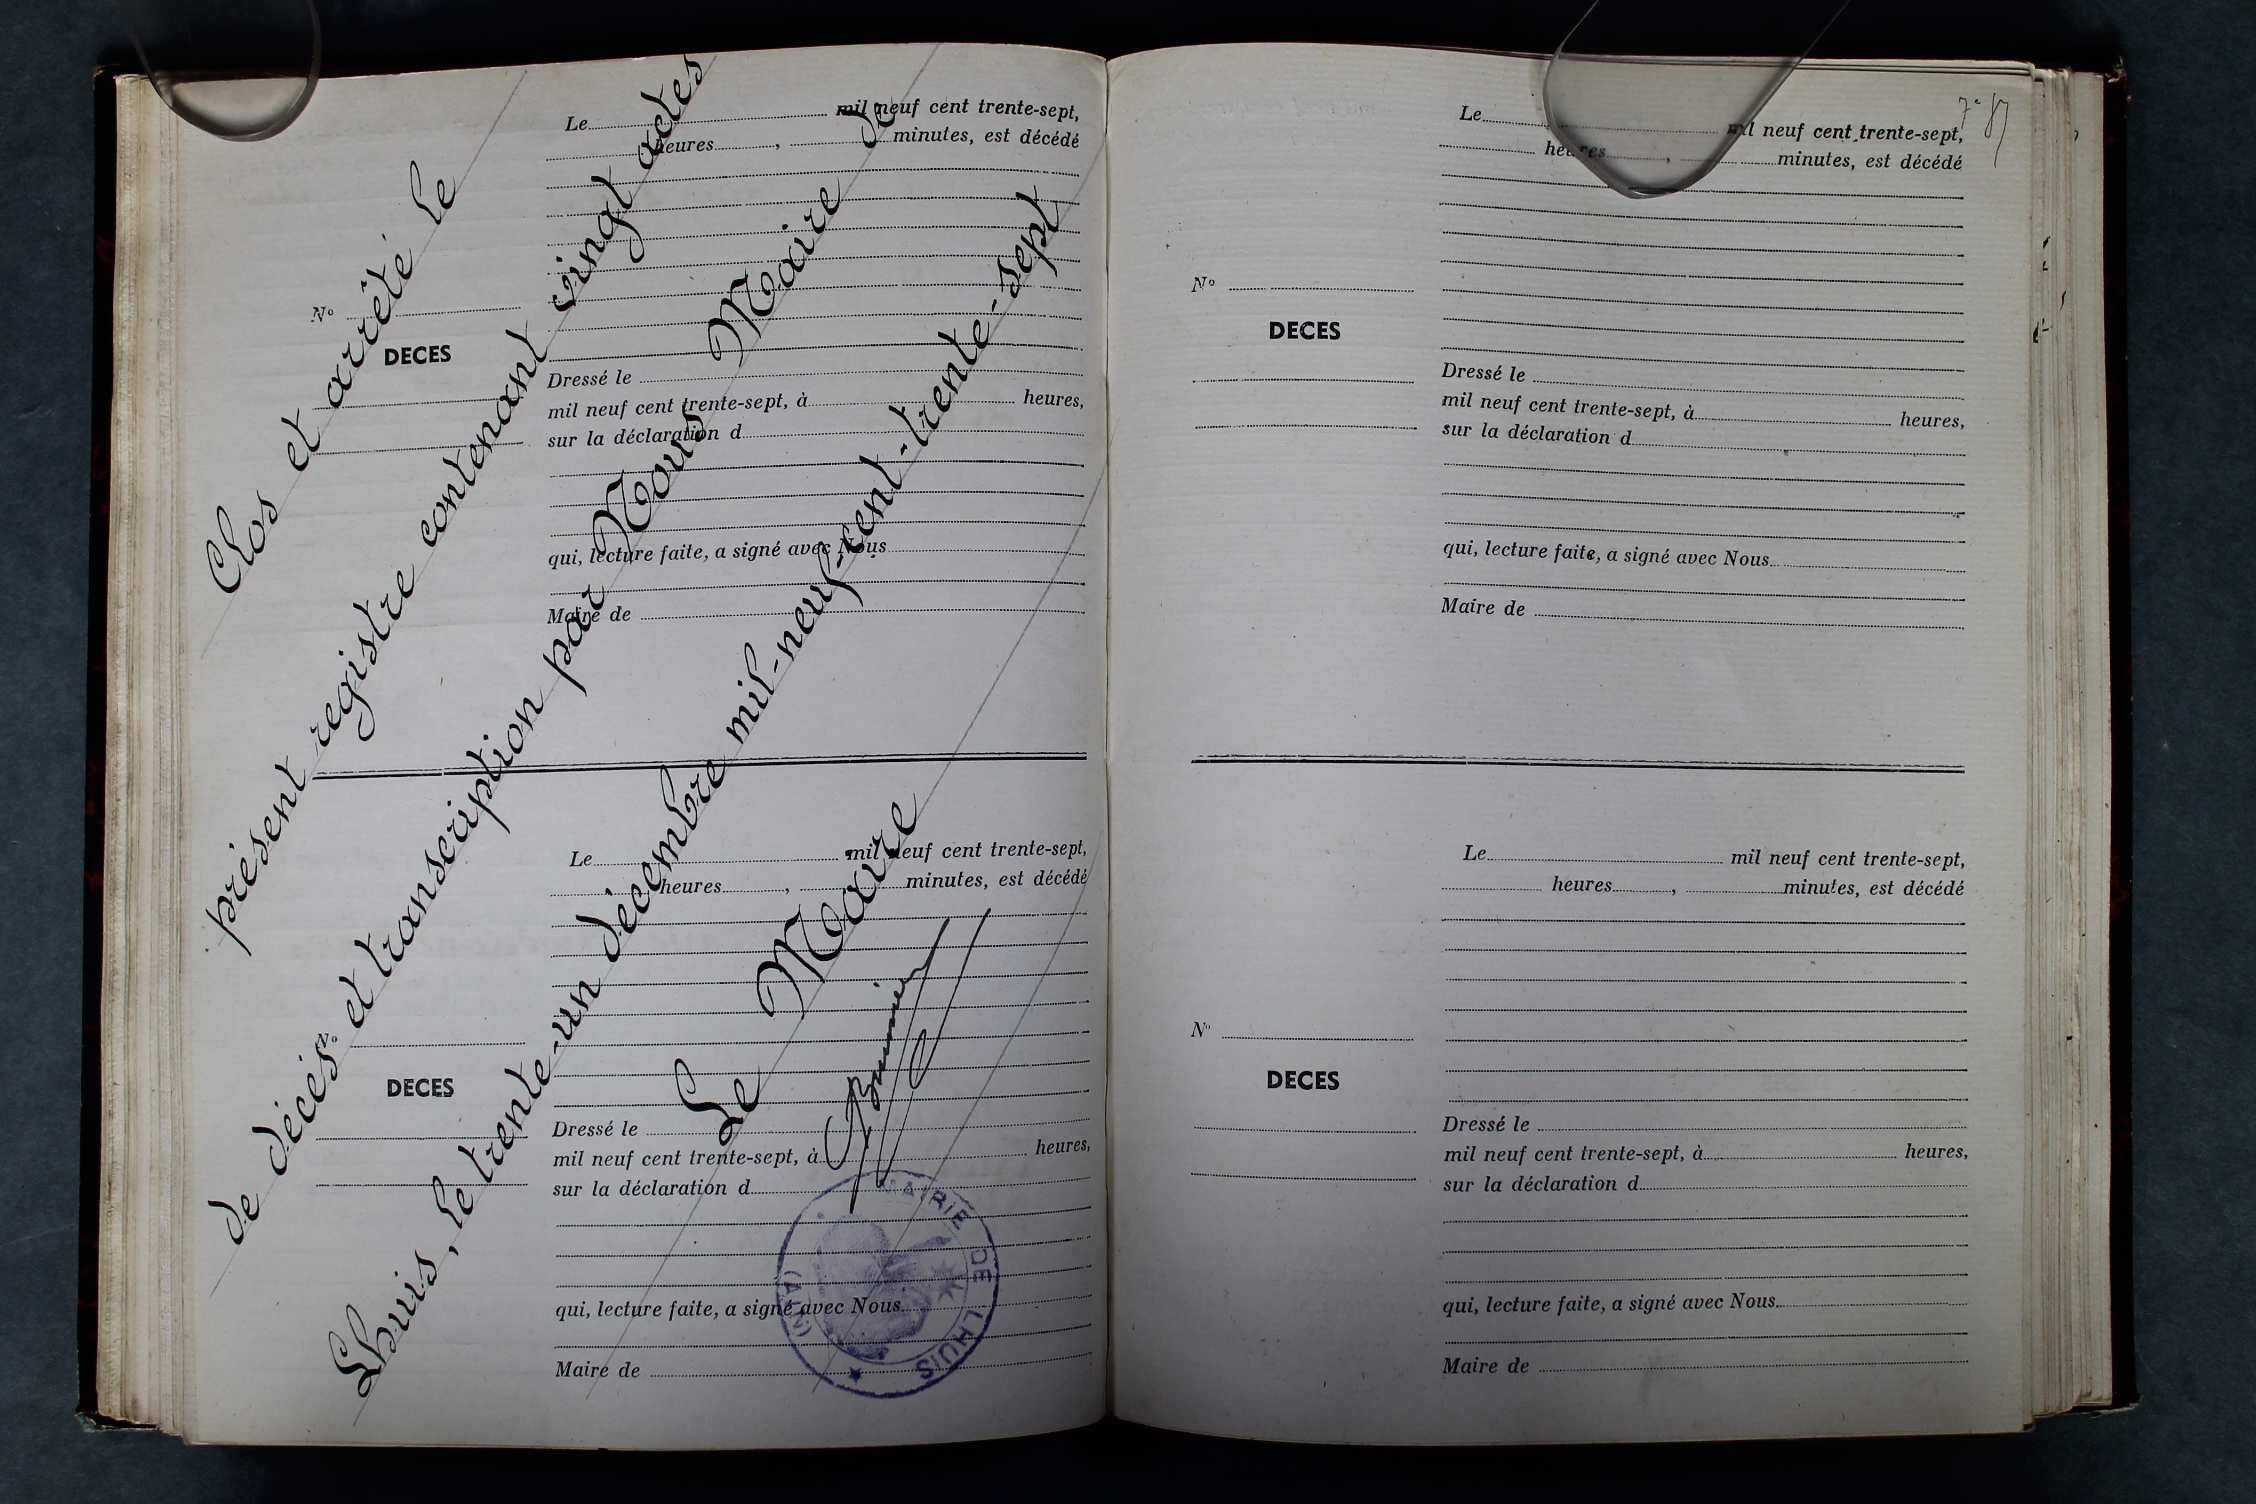 Clos et arrêté le
présent registre contenant vingt actes
de décès et transcription par Nous Maire de
Lhuis, le trente-un décembre mil-neuf-cent-trente-sept
Le Maire
MAIRIE DE LHUIS
(AIN)
Le mil neuf cent trente-sept,
heures , minutes, est décédé
No
DECES
Dressé le
mil neuf cent trente-sept, à heures,
sur la déclaration d
qui, lecture faite, a signé avec Nous
Maire de
Le mil neuf cent trente-sept,
heures , minutes, est décédé
No
DECES
Dressé le
mil neuf cent trente-sept, à heures,
sur la déclaration d
qui, lecture faite, a signé avec Nous
Maire de
Le mil neuf cent trente-sept,
heures , minutes, est décédé
No
DECES
Dressé le
mil neuf cent trente-sept, à heures,
sur la déclaration d
qui, lecture faite, a signé avec Nous
Maire de
Le mil neuf cent trente-sept,
heures , minutes, est décédé
No
DECES
Dressé le
mil neuf cent trente-sept, à heures,
sur la déclaration d
qui, lecture faite, a signé avec Nous
Maire de